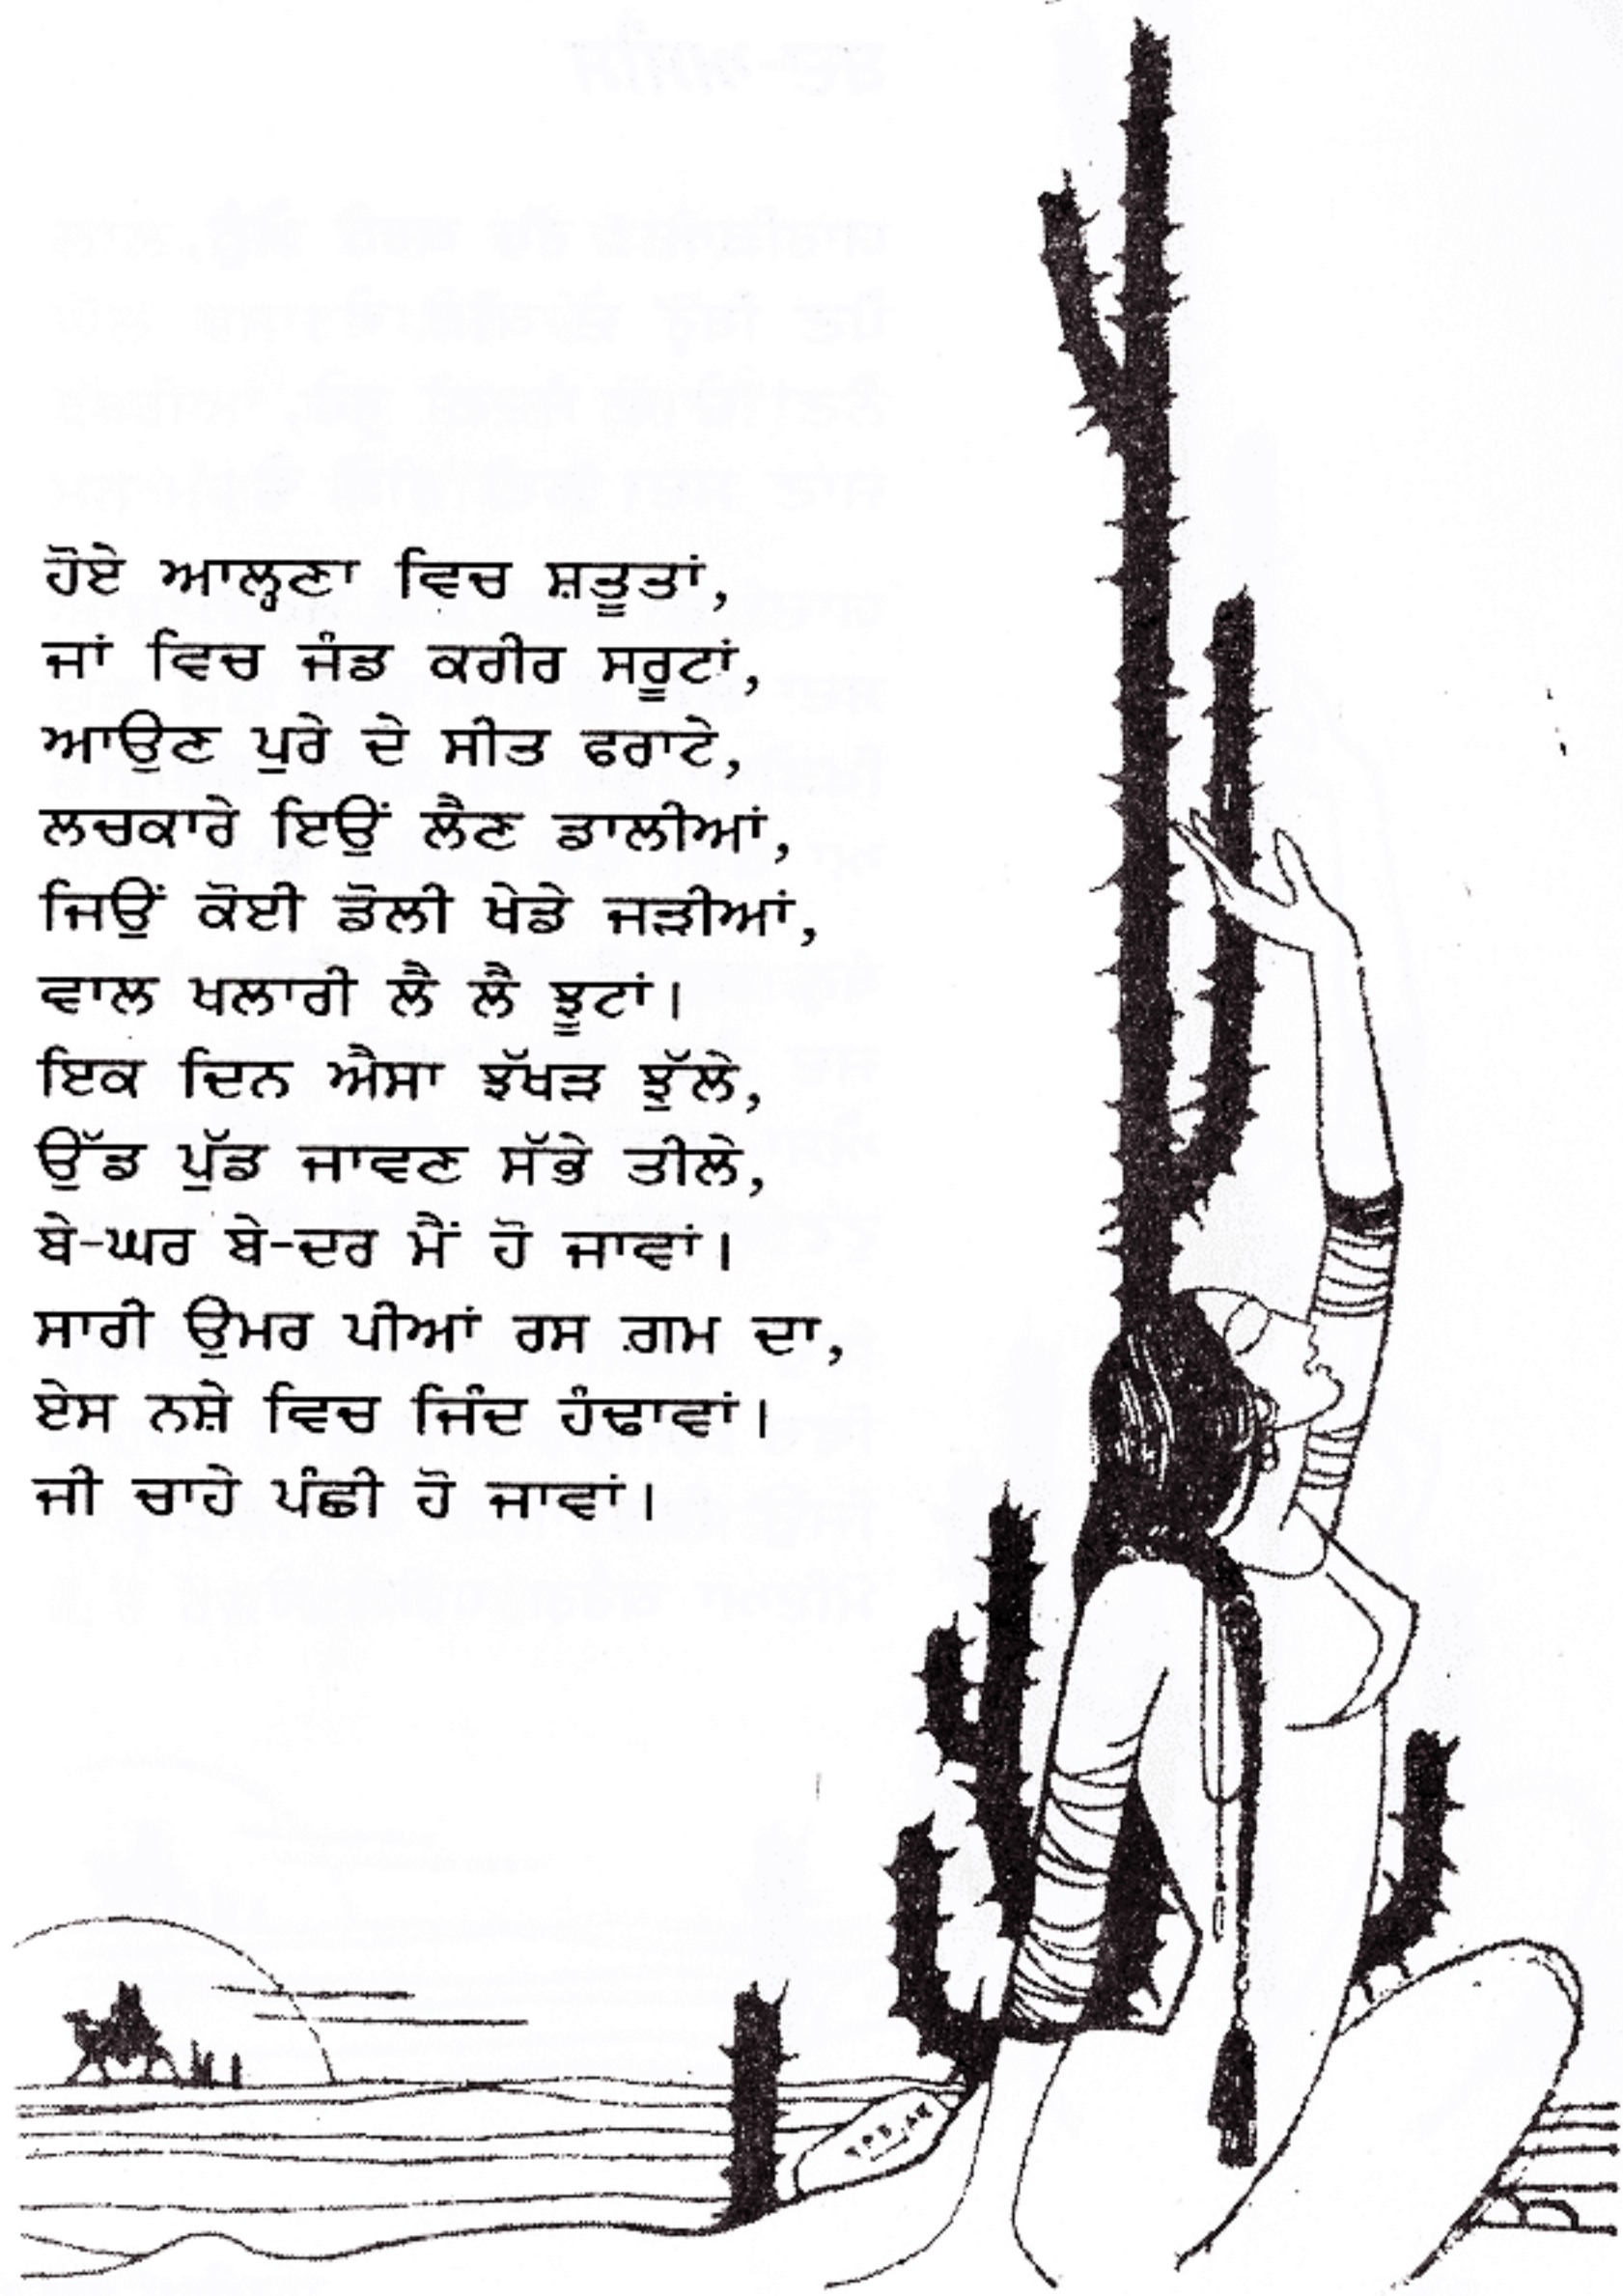 ਹੋਏ ਆਲ੍ਹਣਾ ਵਿਚ ਸ਼ਤੂਤਾਂ,
ਜਾਂ ਵਿਚ ਜੰਡ ਕਰੀਰ ਸਰੂਟਾਂ,
ਆਉਣ ਪੁਰੇ ਦੇ ਸੀਤ ਫਰਾਟੇ,
ਲਚਕਾਰੇ ਇਉਂ ਲੈਣ ਡਾਲੀਆਂ,
ਜਿਉਂ ਕੋਈ ਡੋਲੀ ਖੇਡੇ ਜੜੀਆਂ,
ਵਾਲ ਖਲਾਰੀ ਲੈ ਲੈ ਝੂਟਾਂ।
ਇਕ ਦਿਨ ਐਸਾ ਝੱਖੜ ਝੁੱਲੇ,
ਉੱਡ ਪੁੱਡ ਜਾਵਣ ਸੱਭੇ ਤੀਲੇ,
ਬੇ-ਘਰ ਬੇ-ਦਰ ਮੈਂ ਹੋ ਜਾਵਾਂ।
ਸਾਰੀ ਉਮਰ ਪੀਆਂ ਰਸ ਗ਼ਮ ਦਾ,
ਏਸ ਨਸ਼ੇ ਵਿਚ ਜਿੰਦ ਹੰਢਾਵਾਂ।
ਜੀ ਚਾਹੇ ਪੰਛੀ ਹੋ ਜਾਵਾਂ।